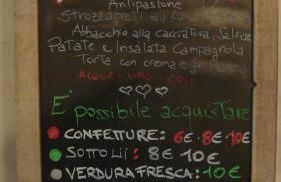 Antipastone
Strozzapreti all'Ama
Abbacchio alla cacciatora, Salsicce
Patate e Insalata Campagnola
Torta con crema e
ACQUA - VINO -
E' possibile acquistare
CONFETTURE: 6€ - 8€ - 10€
SOTTOLII: 8€ 10€
VERDURA FRESCA: 10€